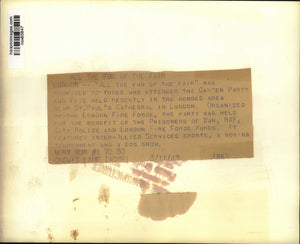 ALL THE FUN OF THE FAIR
LONDON -- "ALL THE FUN OF THE FAIR" WAS
PROMISED TO THOSE WHO ATTENDED THE GARDEN PARTY
AND FETE HELD RECENTLY IN THE BOMBED AREA
NEAR ST. PAUL'S CATHEDRAL IN LONDON. ORGANIZED
BY THE LONDON FIRE FORCE, THE PARTY WAS HELD
FOR THE BENEFIT OF THE PRISONERS OF WAR, RAF,
CITY POLICE AND LONDON FIRE FORCE FUNDS. IT
FEATURED INTER-ALLIED SERVICES SPORTS, A BOXING
TOURNAMENT AND A DOG SHOW.
CREDIT LINE (ACME)